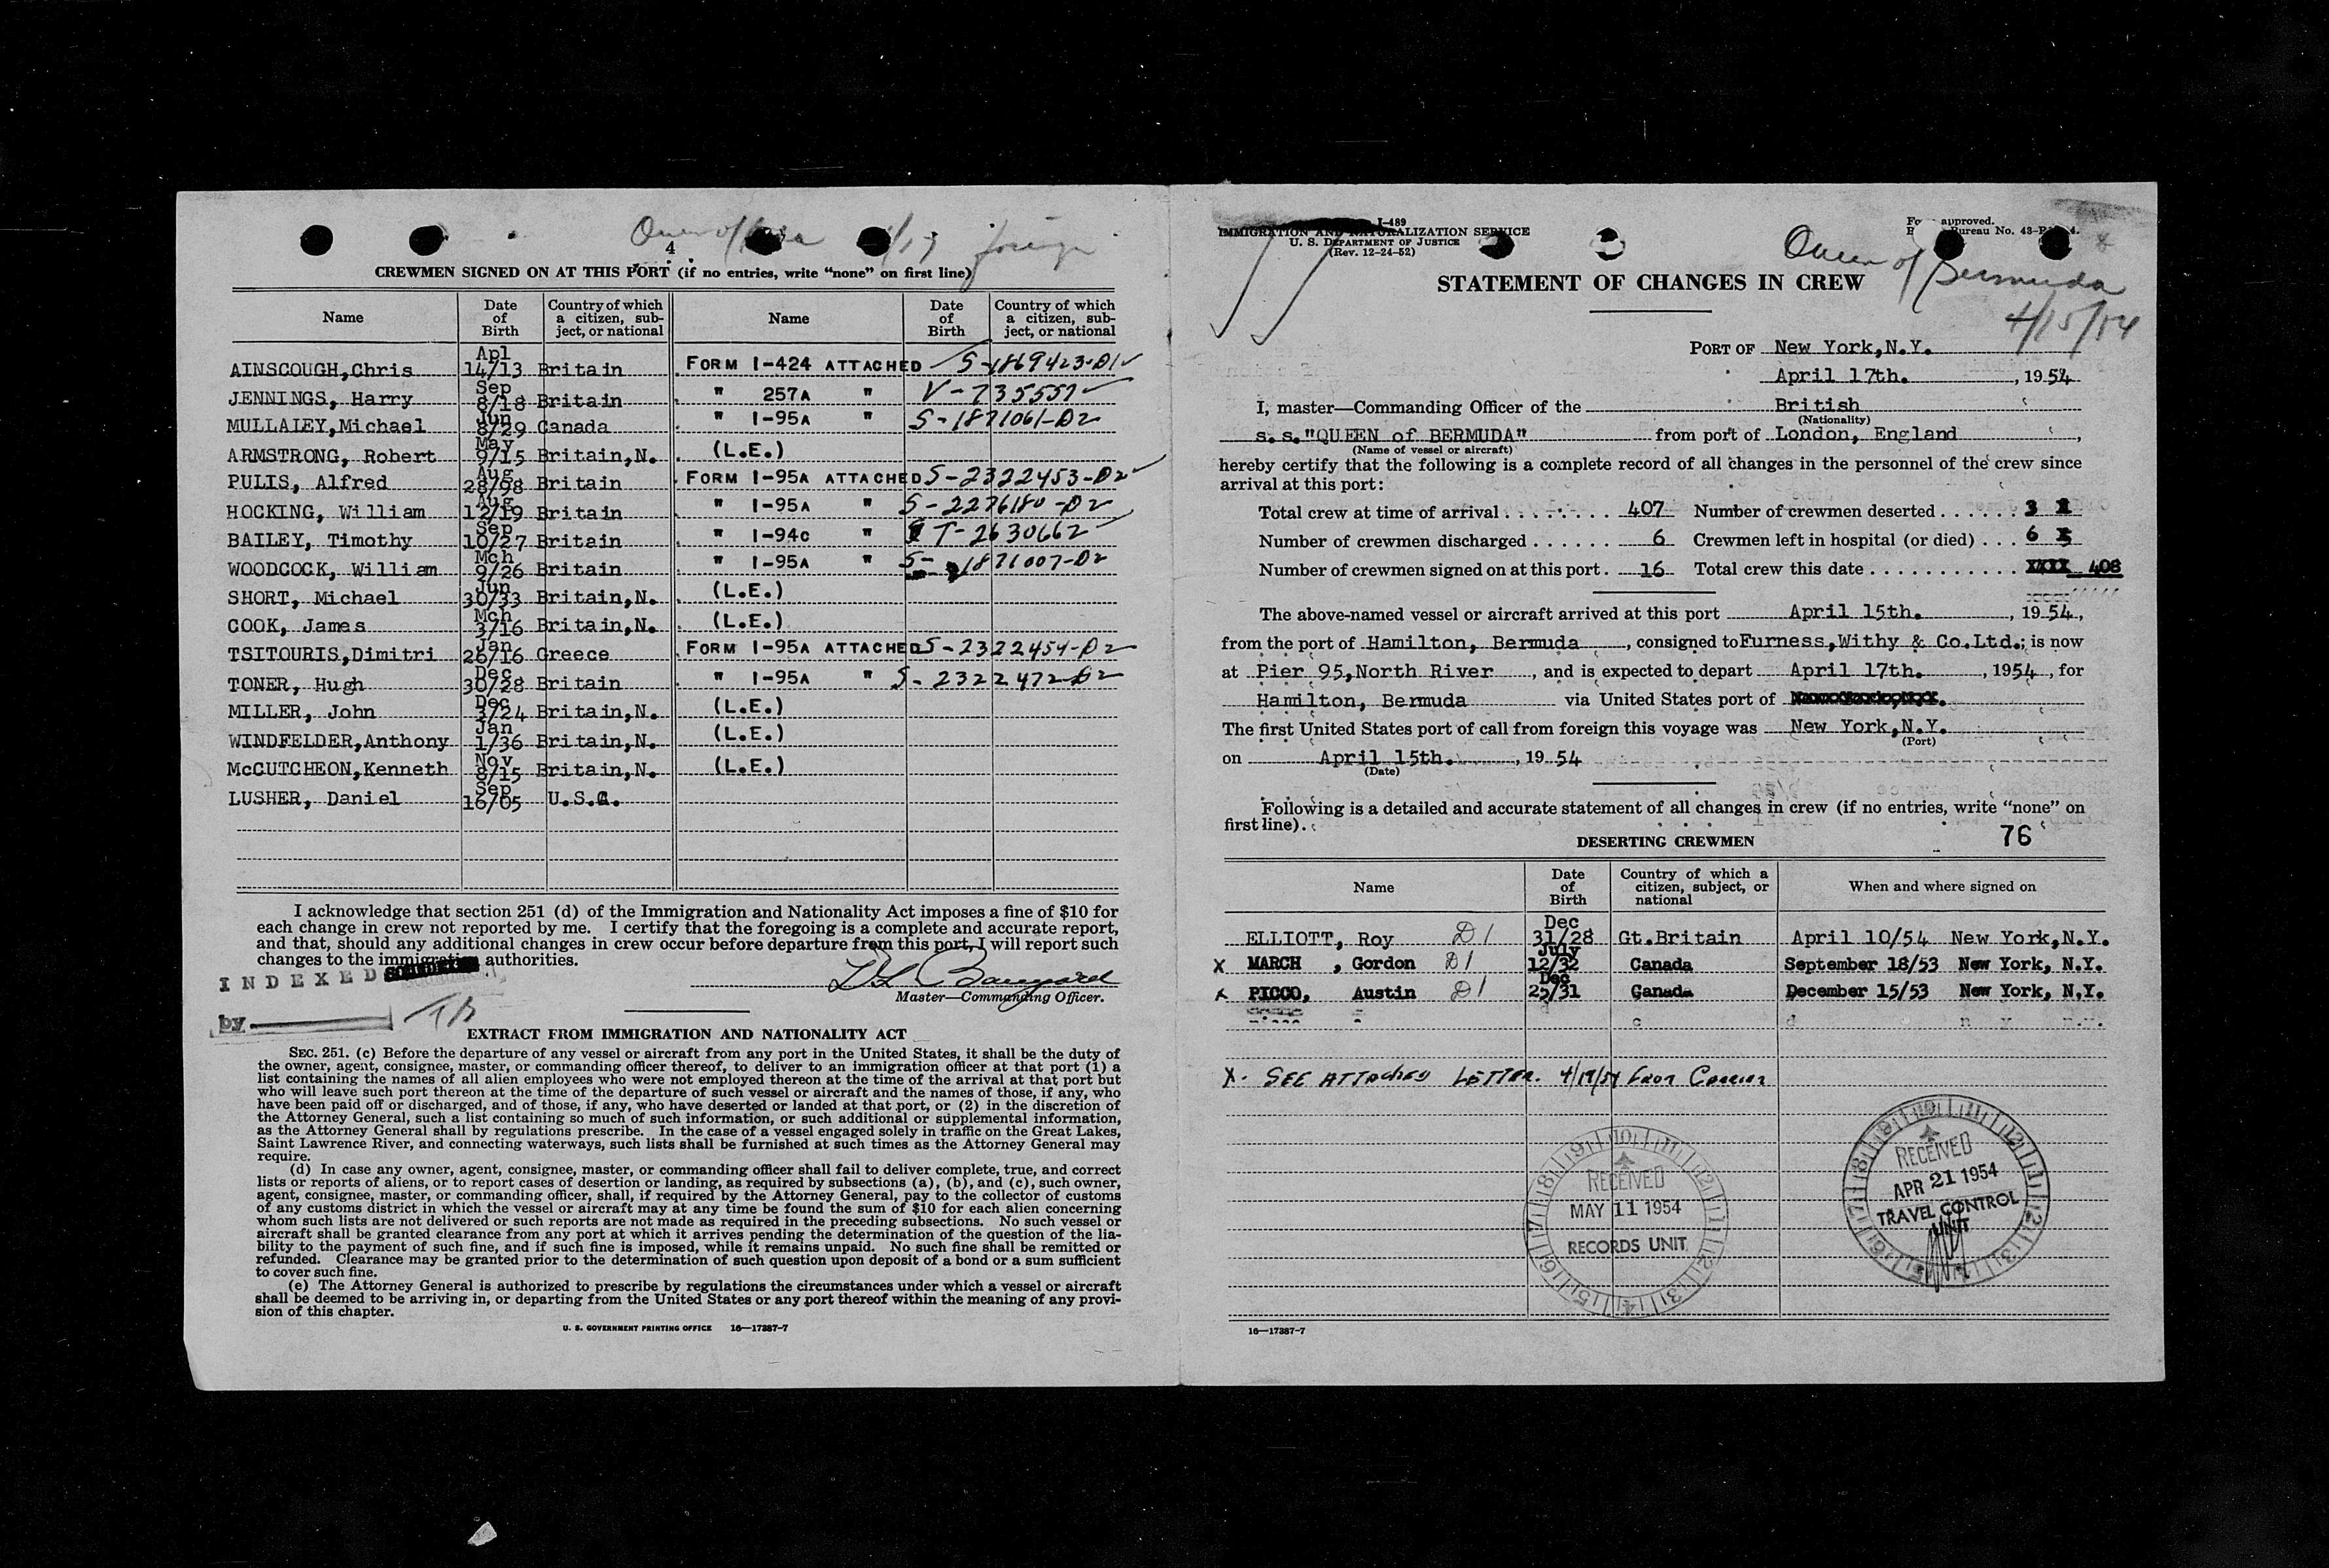 4
CREWMEN SIGNED ON AT THIS PORT (if no entries, write "none" on first line)
foreign
Name
Date of Birth
Country of which a citizen, subject, or national
Name
Date of Birth
Country of which a citizen, subject, or national
AINSCOUGH,Chris Apl 14/13 Britain FORM I-424 ATTACHED S-1869423-D1
JENNINGS, Harry Sep 8/18 Britain " 257A " V-735557
MULLALEY,Michael Jun 8/29 Canada " I-95A " S-1871061-D2
ARMSTRONG, Robert May 9/15 Britain,N. (L.E.)
PULIS, Alfred Aug 28/98 Britain FORM I-95A ATTACHED S-2322453-D2
HOCKING, William Aug 12/19 Britain " I-95A " S-2276180-D2
BAILEY, Timothy Sep 10/27 Britain " I-94C " T-2630662
WOODCOCK, William Mch 9/26 Britain " I-95A " S-1871007-D2
SHORT, Michael Jun 30/33 Britain,N. (L.E.)
COOK, James Mch 3/16 Britain,N. (L.E.)
TSITOURIS,Dimitri Jan 26/16 Greece FORM I-95A ATTACHED S-2322454-D2
TONER, Hugh Dec 30/28 Britain " I-95A " S-2322472-D2
MILLER, John Dec 3/24 Britain,N. (L.E.)
WINDFELDER,Anthony Jan 1/36 Britain,N. (L.E.)
McCUTCHEON,Kenneth Nov 8/15 Britain,N. (L.E.)
LUSHER, Daniel Sep 16/05 U.S.A.
I acknowledge that section 251 (d) of the Immigration and Nationality Act imposes a fine of $10 for
each change in crew not reported by me. I certify that the foregoing is a complete and accurate report,
and that, should any additional changes in crew occur before departure from this port, I will report such
changes to the immigration authorities.
INDEXED
by
Master—Commanding Officer.
EXTRACT FROM IMMIGRATION AND NATIONALITY ACT
SEC. 251. (c) Before the departure of any vessel or aircraft from any port in the United States, it shall be the duty of
the owner, agent, consignee, master, or commanding officer thereof, to deliver to an immigration officer at that port (1) a
list containing the names of all alien employees who were not employed thereon at the time of the arrival at that port but
who will leave such port thereon at the time of the departure of such vessel or aircraft and the names of those, if any, who
have been paid off or discharged, and of those, if any, who have deserted or landed at that port, or (2) in the discretion of
the Attorney General, such a list containing so much of such information, or such additional or supplemental information,
as the Attorney General shall by regulations prescribe. In the case of a vessel engaged solely in traffic on the Great Lakes,
Saint Lawrence River, and connecting waterways, such lists shall be furnished at such times as the Attorney General may
require.
(d) In case any owner, agent, consignee, master, or commanding officer shall fail to deliver complete, true, and correct
lists or reports of aliens, or to report cases of desertion or landing, as required by subsections (a), (b), and (c), such owner,
agent, consignee, master, or commanding officer, shall, if required by the Attorney General, pay to the collector of customs
of any customs district in which the vessel or aircraft may at any time be found the sum of $10 for each alien concerning
whom such lists are not delivered or such reports are not made as required in the preceding subsections. No such vessel or
aircraft shall be granted clearance from any port at which it arrives pending the determination of the question of the lia-
bility to the payment of such fine, and if such fine is imposed, while it remains unpaid. No such fine shall be remitted or
refunded. Clearance may be granted prior to the determination of such question upon deposit of a bond or a sum sufficient
to cover such fine.
(e) The Attorney General is authorized to prescribe by regulations the circumstances under which a vessel or aircraft
shall be deemed to be arriving in, or departing from the United States or any port thereof within the meaning of any provi-
sion of this chapter.
U. S. GOVERNMENT PRINTING OFFICE 16—17387-7
I-489
IMMIGRATION AND NATURALIZATION SERVICE
U. S. DEPARTMENT OF JUSTICE
(Rev. 12-24-52)
approved.
Bureau No. 43-
Queen of Bermuda
4/15/54
STATEMENT OF CHANGES IN CREW
PORT OF New York,N.Y.
April 17th. , 1954
I, master—Commanding Officer of the British
(Nationality)
s.s."QUEEN of BERMUDA" from port of London, England ,
(Name of vessel or aircraft)
hereby certify that the following is a complete record of all changes in the personnel of the crew since
arrival at this port:
Total crew at time of arrival . . . . . . . . 407 Number of crewmen deserted . . . . . . 3
Number of crewmen discharged . . . . . . 6 Crewmen left in hospital (or died) . . . 6
Number of crewmen signed on at this port . 16 Total crew this date . . . . . . . . . . . . XXXX 408
The above-named vessel or aircraft arrived at this port April 15th. , 1954,
from the port of Hamilton, Bermuda , consigned to Furness,Withy & Co.Ltd.; is now
at Pier 95,North River , and is expected to depart April 17th. , 1954 , for
Hamilton, Bermuda via United States port of
The first United States port of call from foreign this voyage was New York,N.Y.
(Port)
on April 15th. , 19 54
(Date)
Following is a detailed and accurate statement of all changes in crew (if no entries, write "none" on
first line).
76
DESERTING CREWMEN
Name
Date of Birth
Country of which a citizen, subject, or national
When and where signed on
ELLIOTT, Roy D1 Dec 31/28 Gt.Britain April 10/54 New York,N.Y.
X MARCH , Gordon D1 July 12/32 Canada September 18/53 New York, N.Y.
X PICCO, Austin D1 Dec 25/31 Canada December 15/53 New York, N.Y.
X. SEE ATTACHED LETTER. 4/19/54 from Carrier
RECEIVED
MAY 11 1954
RECORDS UNIT
RECEIVED
APR 21 1954
TRAVEL CONTROL
UNIT
16—17387-7